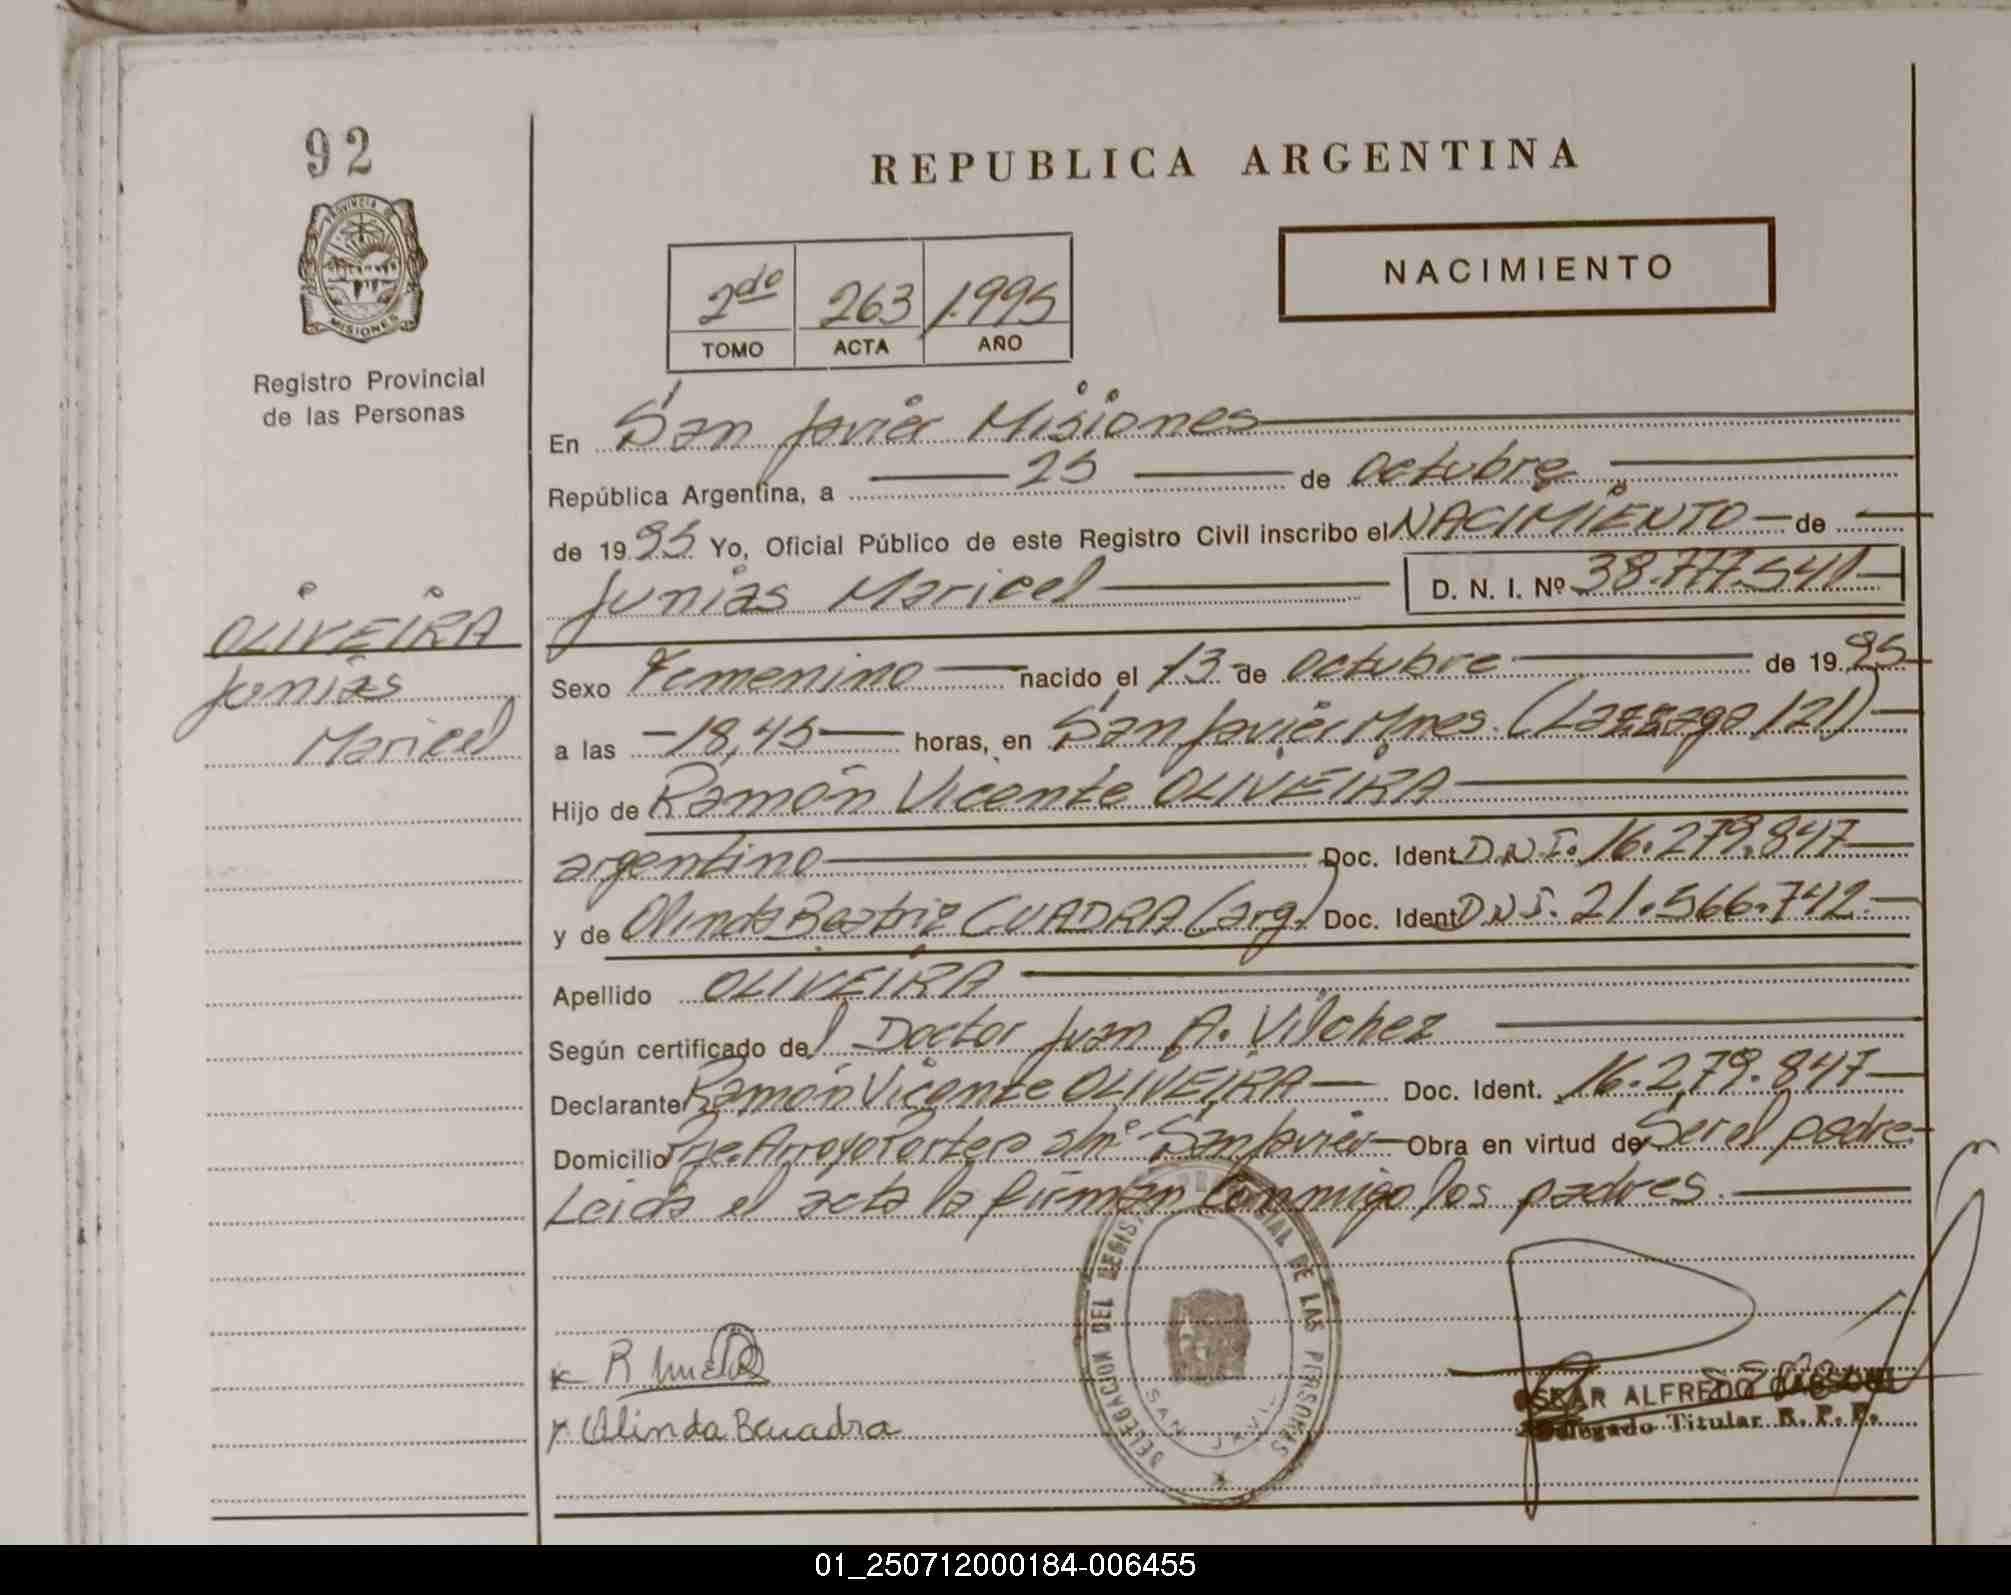 92
PROVINCIA DE
MISIONES
Registro Provincial
de las Personas
OLIVEIRA
Junias
Maricel
REPUBLICA ARGENTINA
NACIMIENTO
2do 263 1.995
TOMO ACTA AÑO
En San Javier Misiones
República Argentina, a 25 de Octubre
de 1995 Yo, Oficial Público de este Registro Civil inscribo el NACIMIENTO de
Junias Maricel D. N. I. Nº 38.777.541
Sexo Femenino nacido el 13 de Octubre de 1995
a las 18,45 horas, en San Javier Mnes. (Lazzaga 121)
Hijo de Ramón Vicente OLIVEIRA
argentino Doc. Ident. D.N.I. 16.279.847
y de Olinda Beatriz CUADRA (arg.) Doc. Ident. D.N.I. 21.566.742.
Apellido OLIVEIRA
Según certificado del Doctor Juan A. Vilchez
Declarante Ramón Vicente OLIVEIRA Doc. Ident. 16.279.847
Domicilio Pje. Arroyo Portera s/nº San Javier Obra en virtud de Ser el padre.
Leida el acta la firman conmigo los padres.
DELEGACION DEL REGISTRO PROVINCIAL DE LAS PERSONAS
SAN JAVIER
Olinda B Cuadra
OSCAR ALFREDO
Delegado Titular R. P. P.
01_250712000184-006455